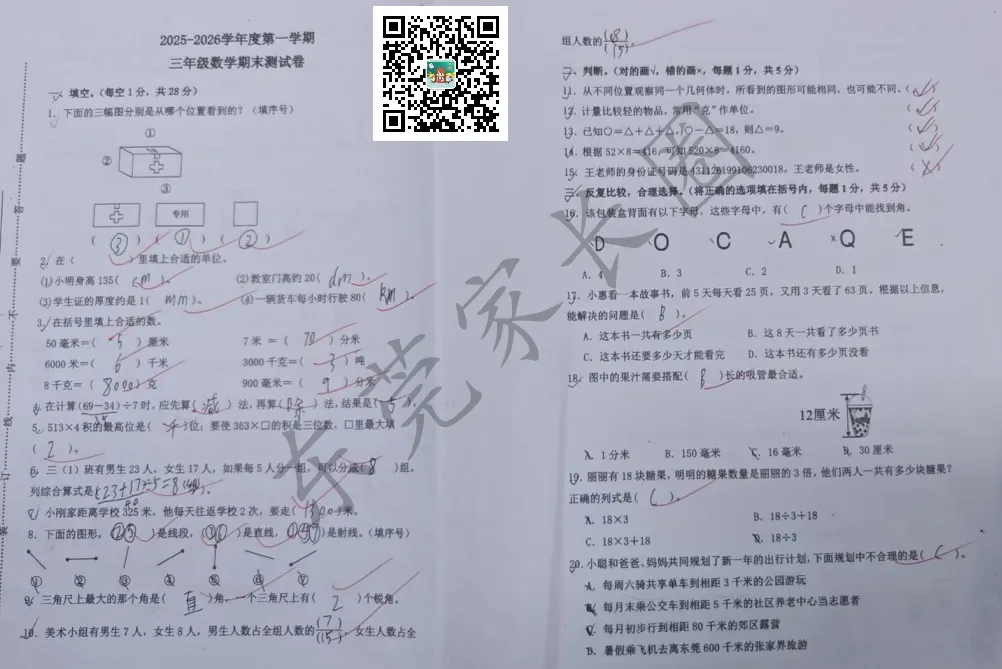 2025-2026学年度第一学期
三年级数学期末测试卷
一、填空。(每空1分，共28分)
1、下面的三幅图分别是从哪个位置看到的？(填序号)
①
②
③
专用
( ③ ) ( ① ) ( ② )
2、在( )里填上合适的单位。
(1)小明身高135( cm )。 (2)教室门高约20( dm )。
(3)学生证的厚度约是1( mm )。 (4)一辆货车每小时行驶80( km )。
3、在括号里填上合适的数。
50毫米=( 5 )厘米 7米 =( 70 )分米
6000米=( 6 )千米 3000千克=( 3 )吨
8千克=( 8000 )克 900毫米=( 9 )分米
4、在计算(69－34)÷7时，应先算( 减 )法，再算( 除 )法，结果是( 5 )。
5、513×4积的最高位是( 千 )位；要使363×□的积是三位数，□里最大填
( 2 )。
6、三(1)班有男生23人，女生17人，如果每5人分一组，可以分成( 8 )组。
列综合算式是(23+17)÷5=8(组)。
7、小刚家距离学校325米，他每天往返学校2次，要走( 1300 )米。
8、下面的图形，( ②⑤ )是线段，( ③⑥ )是直线，( ①④⑦ )是射线。(填序号)
① ② ③ ④ ⑤ ⑥ ⑦
9、三角尺上最大的那个角是( 直 )角，一个三角尺上有( 2 )个锐角。
10、美术小组有男生7人，女生8人，男生人数占全组人数的(7)/(15)，女生人数占全
组人数的(8)/(15)。
二、判断。(对的画√，错的画×，每题1分，共5分)
11、从不同位置观察同一个几何体时，所看到的图形可能相同，也可能不同。( √ )
12、计量比较轻的物品，常用“克”作单位。 ( √ )
13、已知○=△+△+△，○－△=18，则△=9。 ( √ )
14、根据52×8=416，可知520×8=4160。 ( √ )
15、王老师的身份证号码是431126199106230018，王老师是女性。 ( X )
三、反复比较，合理选择。(将正确的选项填在括号内，每题1分，共5分)
16、该包装盒背面有以下字母，这些字母中，有( C )个字母中能找到角。
D O C A Q E
A. 4 B. 3 C. 2 D. 1
17、小惠看一本故事书，前5天每天看25页，又用3天看了63页。根据以上信息，
能解决的问题是( B )。
A. 这本书一共有多少页 B. 这8天一共看了多少页书
C. 这本书还要多少天才能看完 D. 这本书还有多少页没看
18、图中的果汁需要搭配( B )长的吸管最合适。
12厘米
A. 1分米 B. 150毫米 C. 16毫米 D. 30厘米
19、丽丽有18块糖果，明明的糖果数量是丽丽的3倍，他们两人一共有多少块糖果？
正确的列式是( C )。
A. 18×3 B. 18÷3+18
C. 18×3+18 D. 18÷3
20、小聪和爸爸、妈妈共同规划了新一年的出行计划，下面规划中不合理的是( C )。
A. 每周六骑共享单车到相距3千米的公园游玩
B. 每月末乘公交车到相距5千米的社区养老中心当志愿者
C. 每月初步行到相距80千米的郊区露营
D. 暑假乘飞机去离东莞600千米的张家界旅游
东莞家长圈